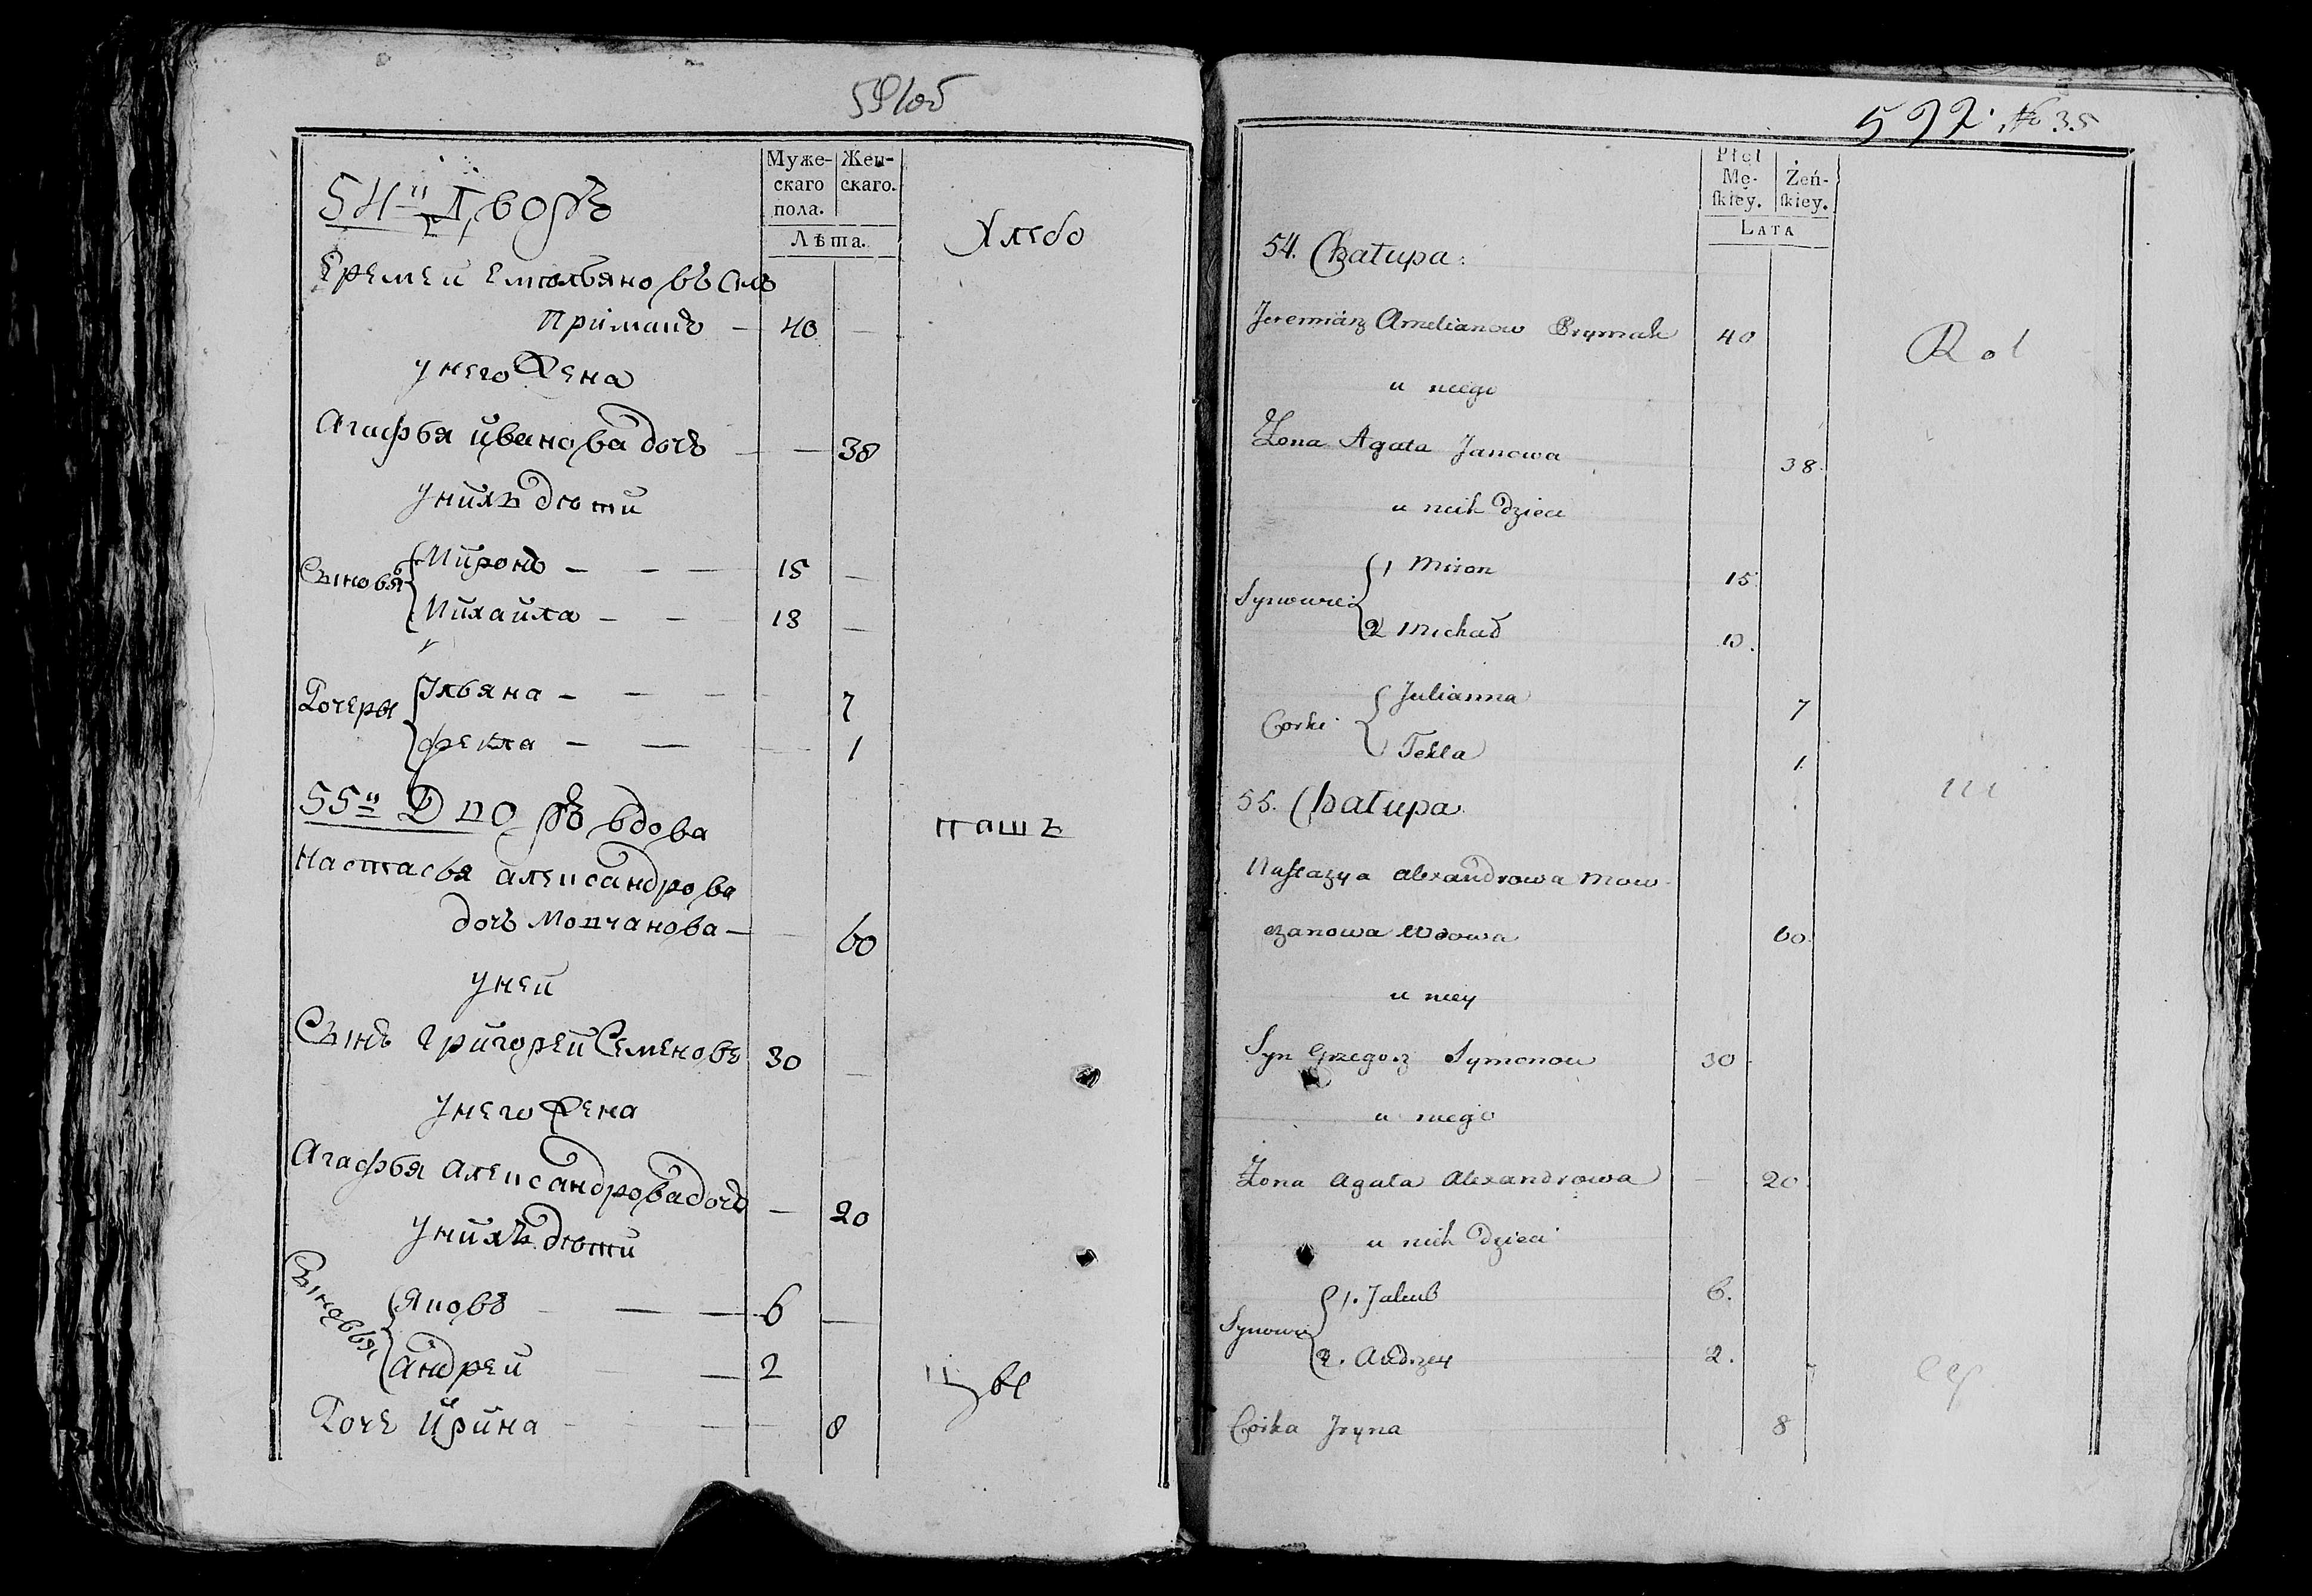 591об
Муже-
скаго
пола.
Жен-
скаго.
Лѣта.
54й Дворъ
Хлебо
Еремей Емельяновъ Снъ
Примакъ — 40 —
у него Жена
Агафья Иванова дочь — — 38
у нихъ дѣти
Сыновья
Миронъ — — — 15 —
Михайла — — — 13 —
Дочеры
Ульяна — — — 7
фекла — — — 1
55й Дворъ вдова
пашъ
Настасья александрова
дочь Мовчанова — — 60
у ней
Сынъ григорей Семеновъ 30 —
у него Жена
Агафья Александрова дочь — 20
у нихъ дѣти
Сыновья
Яковъ — — 6 —
андрей — 2
цы
Дочь Ирина — — 8
592. № 35
Płci
Mę-
ſkiey.
Żeń-
ſkiey.
LATA
54. Chałupa:
Jeremiasz Amelianow Prymak 40
Rol
u niego
Żona Agata Janowa 38.
u nich Dzieci
Synowie
1 Miron 15.
2 Michał 13.
Corki
Julianna 7
Tekla 1.
55. Chałupa.
ni
Naſtazya alexandrowa Mow-
czanowa Wdowa 60.
u niey
Syn Grzegorz Symonow 30
u niego
Żona Agata Alexandrowa — 20
u nich Dzieci
Synowie
1. Jakub 6.
2. Andrzey 2.
cy
Corka Jryna 8